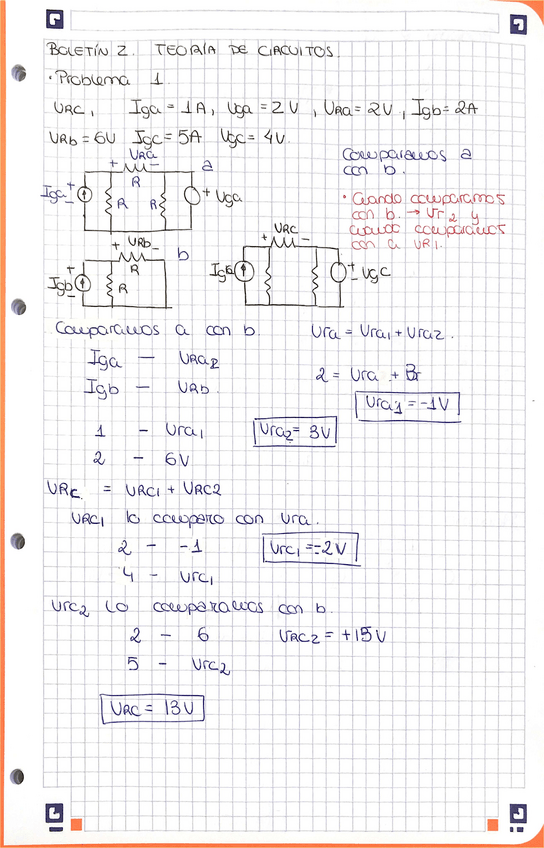 BOLETÍN 2. TEORÍA DE CIRCUITOS.
· Problema 1.
URC, Iga = 1A, Uga = 2V, URa = 2V, Igb = 2A
URb = 6V Igc = 5A Ugc = 4V.
Comparamos a con b.
· Cuando comparamos con b. → Ur2 y cuando comparamos con a UR1.
+ URa −
R
a
Iga
+
−
R
R
+ Uga
+ URb −
R
b
Igb
+
−
R
URC
+ −
Igc
+
−
+
− Ugc
Comparamos a con b.
Ura = Ura1 + Ura2.
Iga — URa2
Igb — URb.
2 = Ura + Br
Ura1 = -1V
1 - Ura1
Ura2 = 3V
2 - 6V
URc = URC1 + URC2
URC1 lo comparo con Ura.
2 - -1
Urc1 = -2V
4 - Urc1
Urc2 lo comparamos con b.
2 - 6
URC2 = +15V
5 - Urc2
URC = 13V